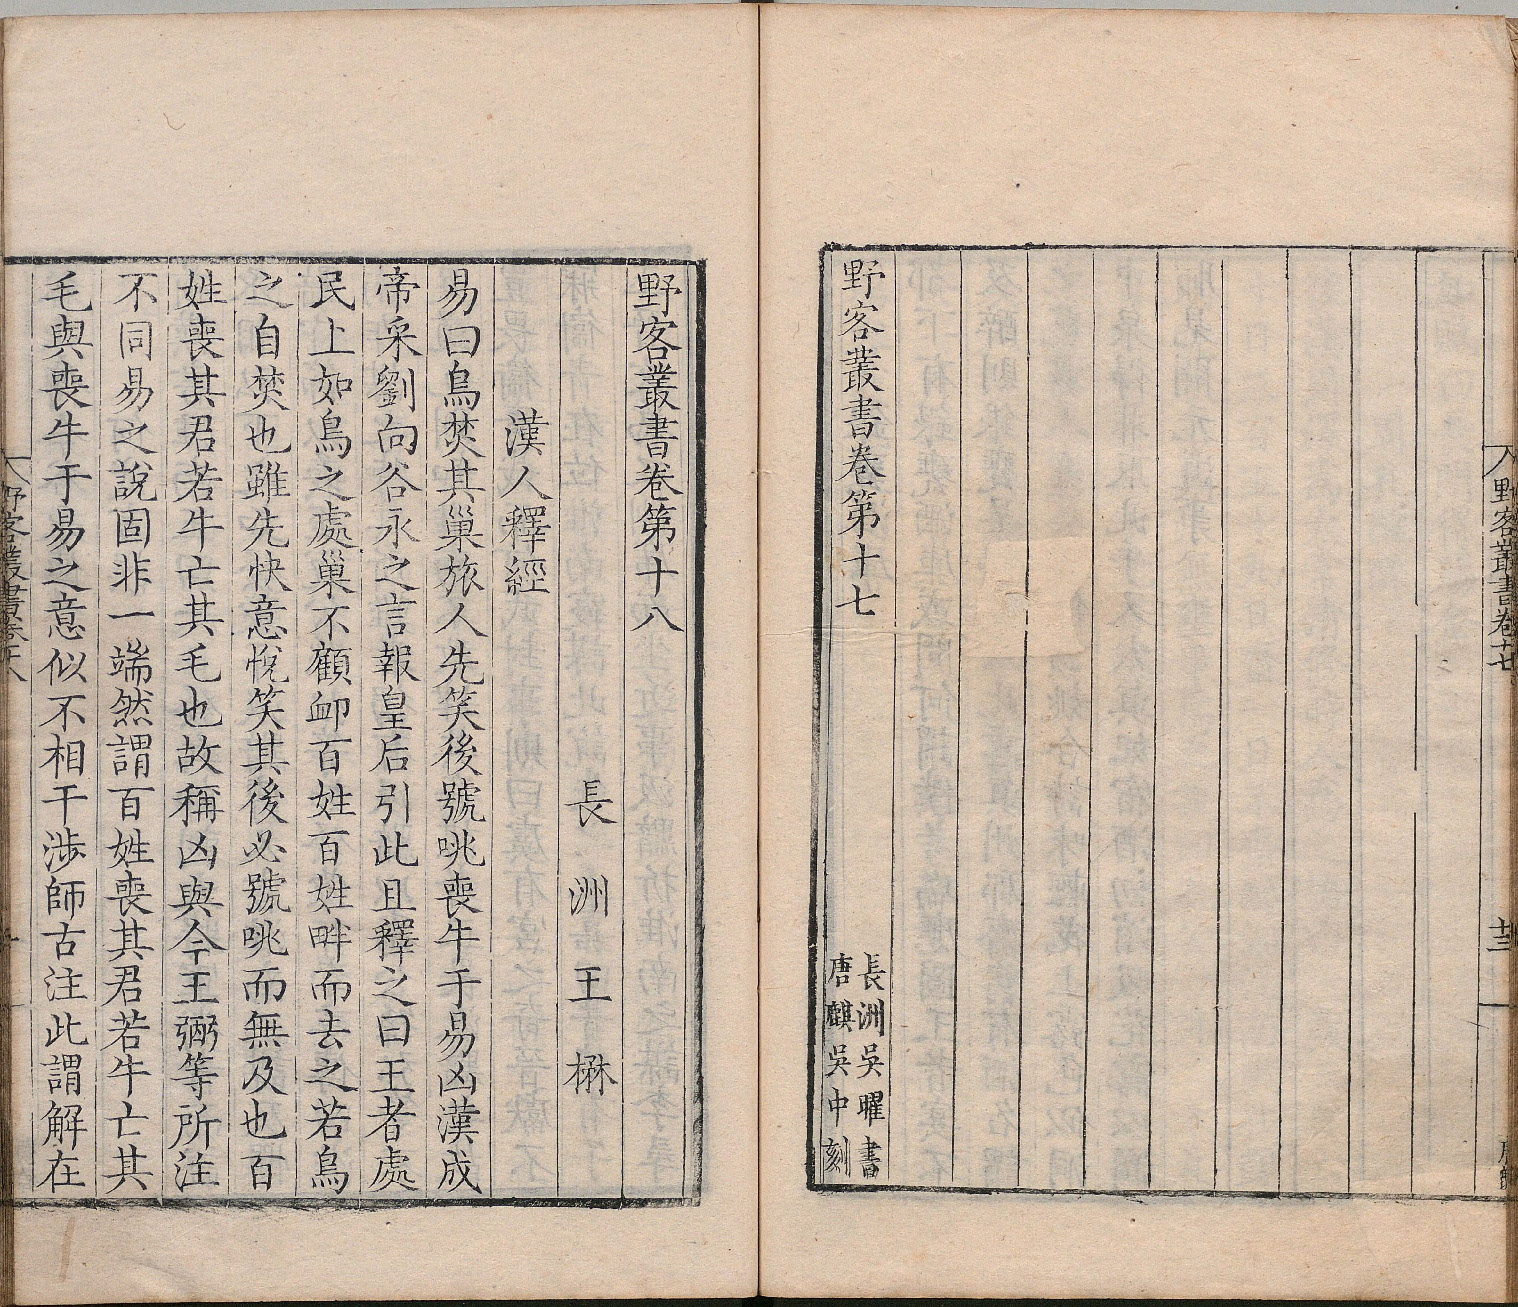 野客叢書卷十七
廿三
野客叢書卷第十七
長洲吳曜書
唐麒吳中刻
野客叢書卷第十八
長洲王楙
漢人釋經
易曰鳥焚其巢旅人先笑後號咷喪牛于易凶漢成
帝采劉向谷永之言報皇后引此且釋之曰王者處
民上如鳥之處巢不顧卹百姓百姓畔而去之若鳥
之自焚也雖先快意悅笑其後必號咷而無及也百
姓喪其君若牛亡其毛也故稱凶與今王弼等所注
不同易之說固非一端然謂百姓喪其君若牛亡其
毛與喪牛于易之意似不相干涉師古注此謂解在
野客叢書卷十八